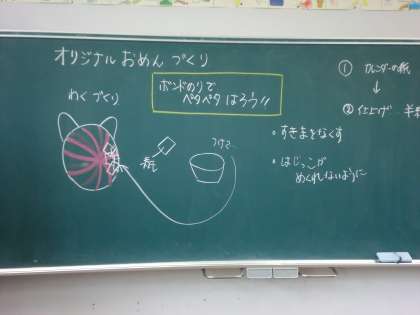 オリジナルおめんづくり
わくづくり
ボンドのりで
ペタペタはろう!!
① カレンダーの紙
↓
② 仕上げ 半紙
・すきまをなくす
・はじっこが
めくれないように